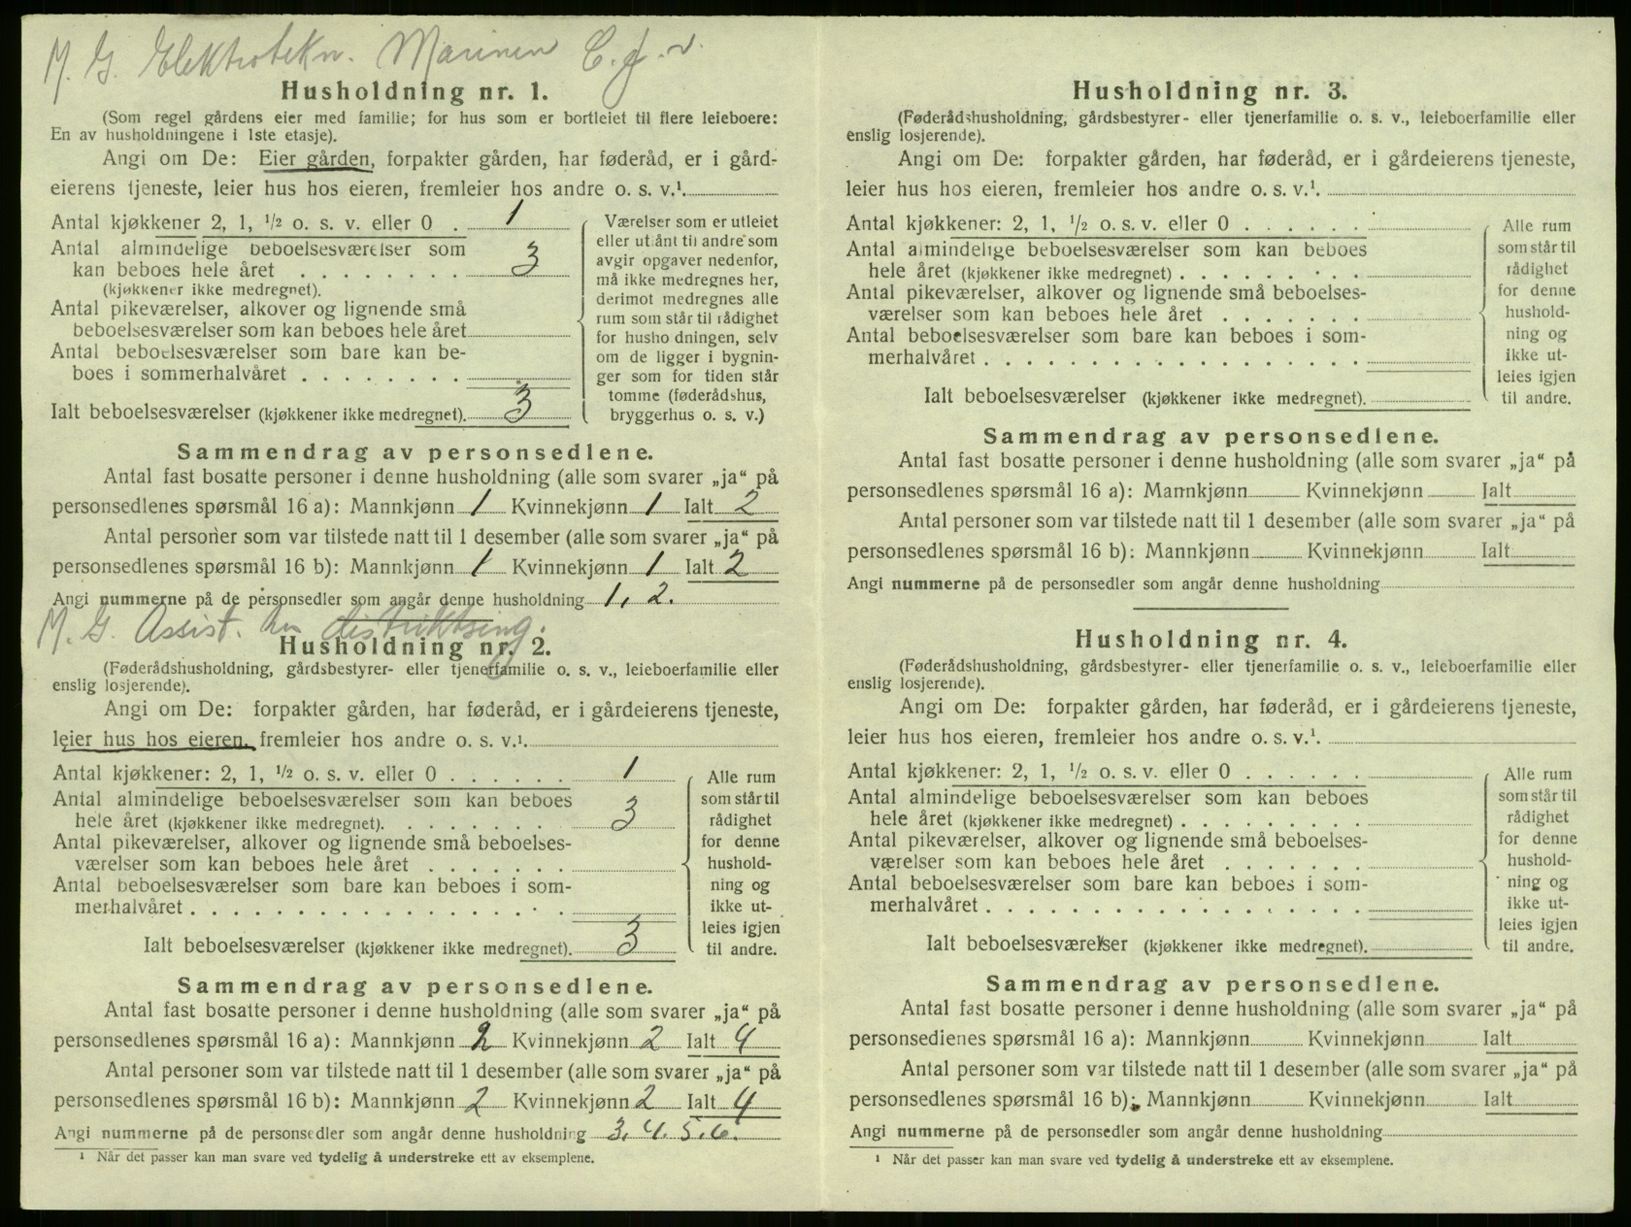 M. G. Elektrotekn. Marinen C. J. v.
Husholdning nr. 1.
(Som regel gårdens eier med familie; for hus som er bortleiet til flere leieboere:
En av husholdningene i 1ste etasje).
Angi om De: Eier gården, forpakter gården, har føderåd, er i gård-
eierens tjeneste, leier hus hos eieren, fremleier hos andre o. s. v.¹.
Antal kjøkkener 2, 1, ½ o. s. v. eller 0 . 1
Antal almindelige beboelsesværelser som
kan beboes hele året . . . . . . . . 3
(kjøkkener ikke medregnet).
Antal pikeværelser, alkover og lignende små
beboelsesværelser som kan beboes hele året
Antal beboelsesværelser som bare kan be-
boes i sommerhalvåret . . . . . . . .
Ialt beboelsesværelser (kjøkkener ikke medregnet). 3
Værelser som er utleiet
eller utlånt til andre som
avgir opgaver nedenfor,
må ikke medregnes her,
derimot medregnes alle
rum som står til rådighet
for husholdningen, selv
om de ligger i bygnin-
ger som for tiden står
tomme (føderådshus,
bryggerhus o. s. v.)
Sammendrag av personsedlene.
Antal fast bosatte personer i denne husholdning (alle som svarer „ja“ på
personsedlenes spørsmål 16 a): Mannkjønn 1 Kvinnekjønn 1 Ialt 2
Antal personer som var tilstede natt til 1 desember (alle som svarer „ja“ på
personsedlenes spørsmål 16 b): Mannkjønn 1 Kvinnekjønn 1 Ialt 2
Angi nummerne på de personsedler som angår denne husholdning 1, 2.
M. G. Assist. hos distriktsing.
Husholdning nr. 2.
(Føderådshusholdning, gårdsbestyrer- eller tjenerfamilie o. s. v., leieboerfamilie eller
enslig losjerende).
Angi om De: forpakter gården, har føderåd, er i gårdeierens tjeneste,
leier hus hos eieren, fremleier hos andre o. s. v.¹.
Antal kjøkkener: 2, 1, ½ o. s. v. eller 0 . . . . . . 1
Antal almindelige beboelsesværelser som kan beboes
hele året (kjøkkener ikke medregnet). . . . . . . . 3
Antal pikeværelser, alkover og lignende små beboelses-
værelser som kan beboes hele året . . . . . . .
Antal beboelsesværelser som bare kan beboes i som-
merhalvåret . . . . . . . . . . . . . . . . .
Ialt beboelsesværelser (kjøkkener ikke medregnet). 3
Alle rum
som står til
rådighet
for denne
hushold-
ning og
ikke ut-
leies igjen
til andre.
Sammendrag av personsedlene.
Antal fast bosatte personer i denne husholdning (alle som svarer „ja“ på
personsedlenes spørsmål 16 a): Mannkjønn 2 Kvinnekjønn 2 Ialt 4
Antal personer som var tilstede natt til 1 desember (alle som svarer „ja“ på
personsedlenes spørsmål 16 b): Mannkjønn 2 Kvinnekjønn 2 Ialt 4
Angi nummerne på de personsedler som angår denne husholdning 3, 4. 5. 6.
¹ Når det passer kan man svare ved tydelig å understreke ett av eksemplene.
Husholdning nr. 3.
(Føderådshusholdning, gårdsbestyrer- eller tjenerfamilie o. s. v., leieboerfamilie eller
enslig losjerende).
Angi om De: forpakter gården, har føderåd, er i gårdeierens tjeneste,
leier hus hos eieren, fremleier hos andre o. s. v.¹.
Antal kjøkkener: 2, 1, ½ o. s. v. eller 0 . . . . . .
Antal almindelige beboelsesværelser som kan beboes
hele året (kjøkkener ikke medregnet) . . . . . . . . .
Antal pikeværelser, alkover og lignende små beboelses-
værelser som kan beboes hele året . . . . . . .
Antal beboelsesværelser som bare kan beboes i som-
merhalvåret . . . . . . . . . . . . . . . . .
Ialt beboelsesværelser (kjøkkener ikke medregnet).
Alle rum
som står til
rådighet
for denne
hushold-
ning og
ikke ut-
leies igjen
til andre.
Sammendrag av personsedlene.
Antal fast bosatte personer i denne husholdning (alle som svarer „ja“ på
personsedlenes spørsmål 16 a): Mannkjønn Kvinnekjønn Ialt
Antal personer som var tilstede natt til 1 desember (alle som svarer „ja“ på
personsedlenes spørsmål 16 b): Mannkjønn Kvinnekjønn Ialt
Angi nummerne på de personsedler som angår denne husholdning
Husholdning nr. 4.
(Føderådshusholdning, gårdsbestyrer- eller tjenerfamilie o. s. v., leieboerfamilie eller
enslig losjerende).
Angi om De: forpakter gården, har føderåd, er i gårdeierens tjeneste,
leier hus hos eieren, fremleier hos andre o. s. v.¹.
Antal kjøkkener: 2, 1, ½ o. s. v. eller 0 . . . . . .
Antal almindelige beboelsesværelser som kan beboes
hele året (kjøkkener ikke medregnet) . . . . . . . . .
Antal pikeværelser, alkover og lignende små beboelses-
værelser som kan beboes hele året . . . . . . .
Antal beboelsesværelser som bare kan beboes i som-
merhalvåret . . . . . . . . . . . . . . . . .
Ialt beboelsesværelser (kjøkkener ikke medregnet).
Alle rum
som står til
rådighet
for denne
hushold-
ning og
ikke ut-
leies igjen
til andre.
Sammendrag av personsedlene.
Antal fast bosatte personer i denne husholdning (alle som svarer „ja“ på
personsedlenes spørsmål 16 a): Mannkjønn Kvinnekjønn Ialt
Antal personer som var tilstede natt til 1 desember (alle som svarer „ja“ på
personsedlenes spørsmål 16 b): Mannkjønn Kvinnekjønn Ialt
Angi nummerne på de personsedler som angår denne husholdning
¹ Når det passer kan man svare ved tydelig å understreke ett av eksemplene.